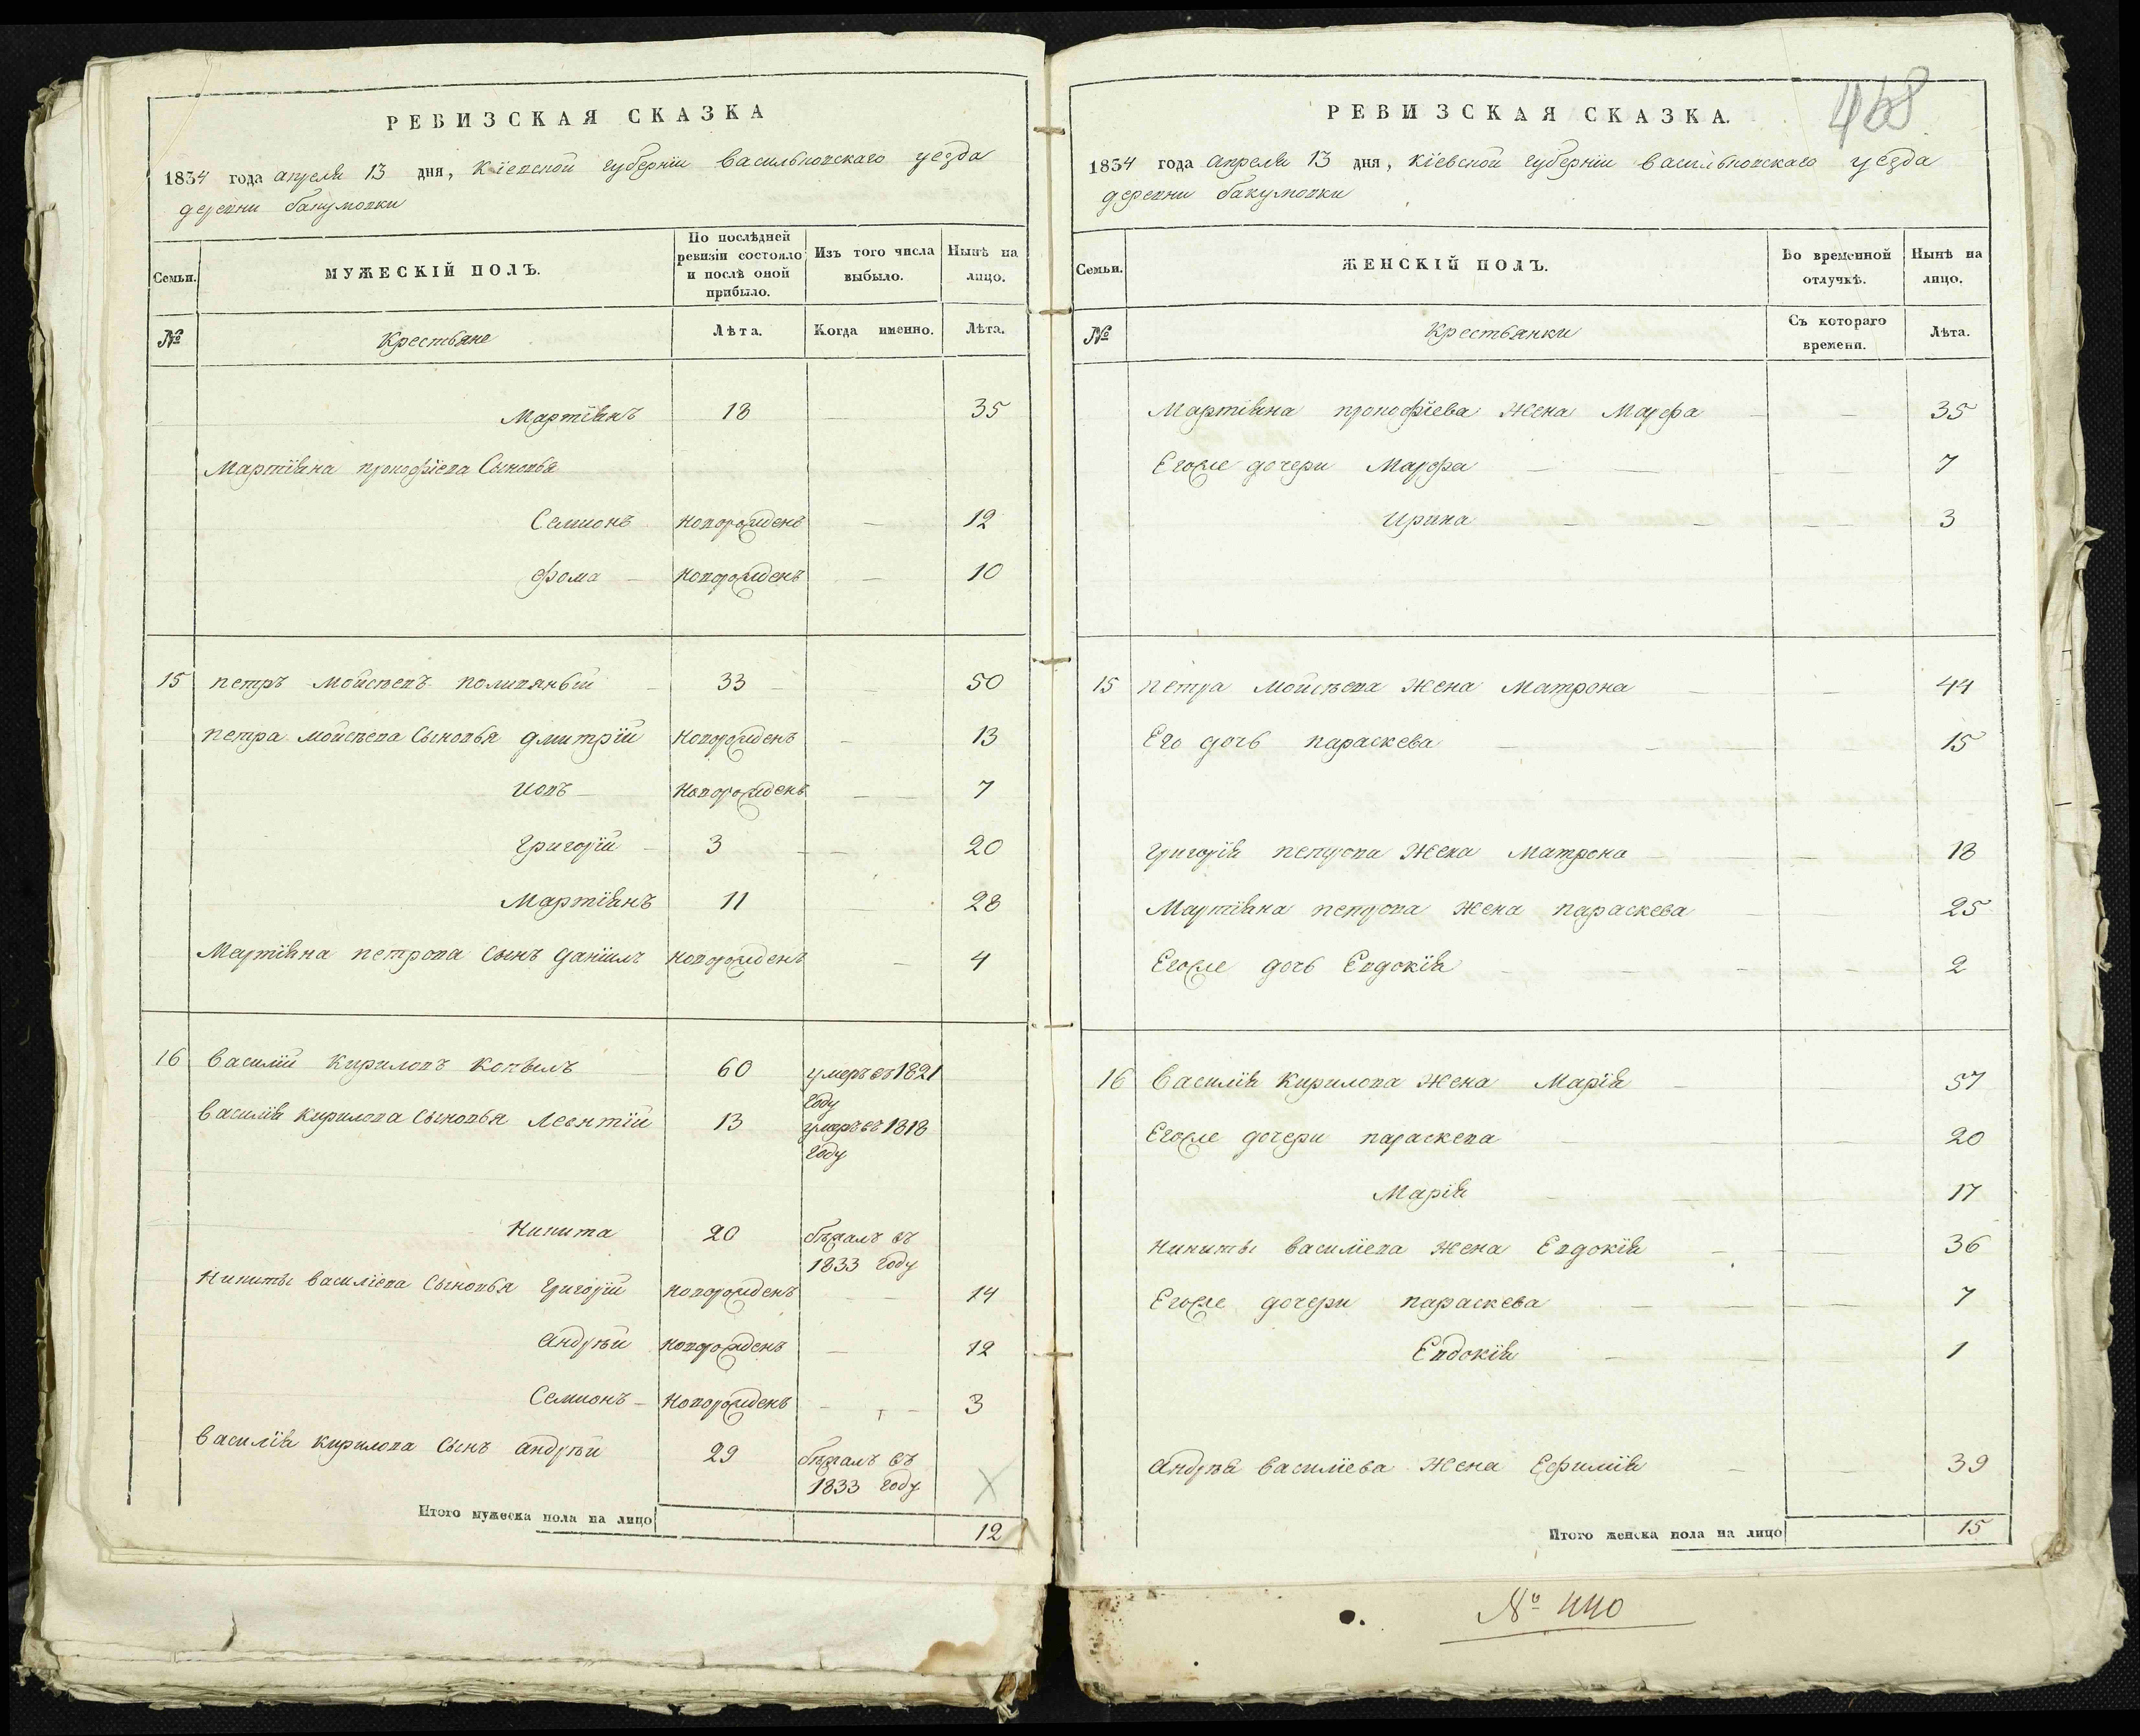 РЕВИЗСКАЯ СКАЗКА
1834 года апреля 13 дня, Кіевской губерніи васильковскаго уезда
деревни бакумовки
Семьи.
МУЖЕСКІЙ ПОЛЪ.
По послѣдней ревизіи состояло и послѣ оной прибыло.
Изъ того числа выбыло.
Нынѣ на лицо.
№
Крестьяне
Лѣта.
Когда именно.
Лѣта.
Мартіянъ 18 35
Мартіяна прокофіева Сыновья
Семионъ новорожденъ 12
Фома новорожденъ 10
15 петръ мойсѣевъ 33 50
петра мойсѣева Сыновья дмитрій новорожденъ 13
Иовъ новорожденъ 7
григорій 3 20
Мартіянъ 11 28
Мартіяна петрова Сынъ даніилъ новорожденъ 4
16 василій кириловъ копылъ 60 умеръ въ 1821 году
василія кирилова Сыновья Леонтій 13 умеръ въ 1818 году
Никита 20 бѣжалъ въ 1833 году
Никиты василіева Сыновья григорій новорожденъ 14
андрѣй новорожденъ 12
Семионъ новорожденъ 3
василія кирилова Сынъ андрѣй 29 бѣжалъ въ 1833 году
Итого мужеска пола на лицо 12
468
РЕВИЗСКАЯ СКАЗКА.
1834 года апреля 13 дня, кіевской губерніи васильковскаго уезда
деревни бакумовки
Семьи.
ЖЕНСКІЙ ПОЛЪ.
Во временной отлучкѣ.
Нынѣ на лицо.
№
Крестьянки
Съ котораго времени.
Лѣта.
Мартіяна прокофіева жена Марфа 35
Егоже дочери Марфа 7
Ирина 3
15 петра мойсѣева жена матрона 44
Его дочь параскева 15
григорія петрова жена матрона 18
Мартіяна петрова жена параскева 25
Егоже дочь Евдокія 2
16 василія кирилова жена Марія 57
Егоже дочери параскева 20
Марія 17
никиты василіева жена Евдокія 36
Егоже дочери параскева 7
Евдокія 1
андрѣя василіева жена Ефимія 39
Итого женска пола на лицо 15
№ 440